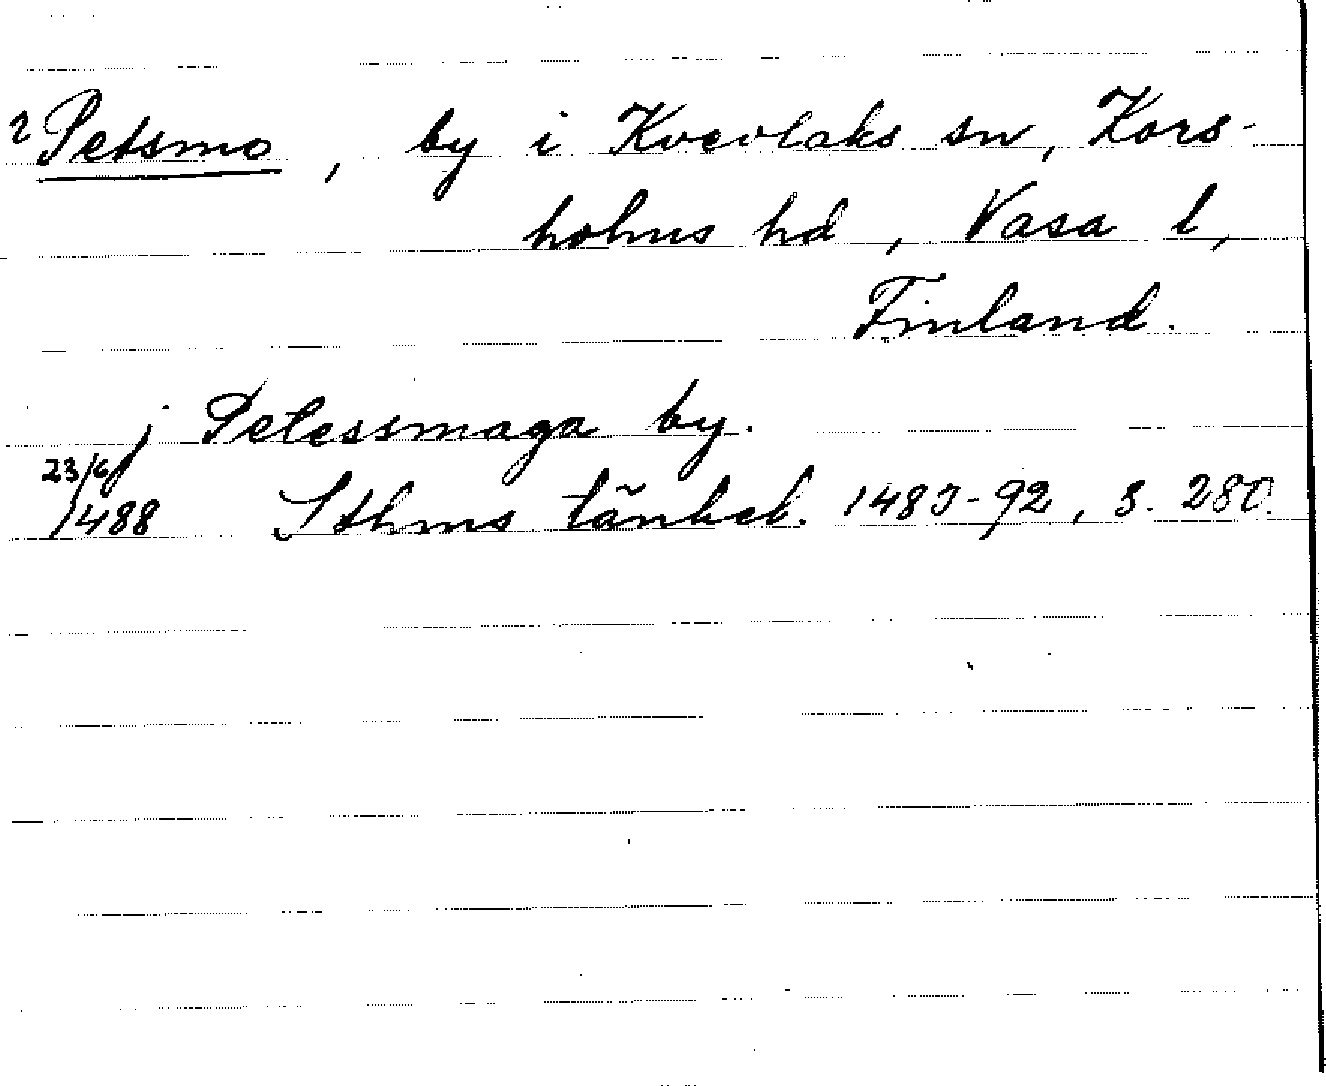 ? Petsmo, by i Kvevlaks sn, Kors-
holms hd, Vasa l,
Finland.
j Petessmaga by.
23/6 1488 Sthms tänkeb. 1483-92, s. 280.